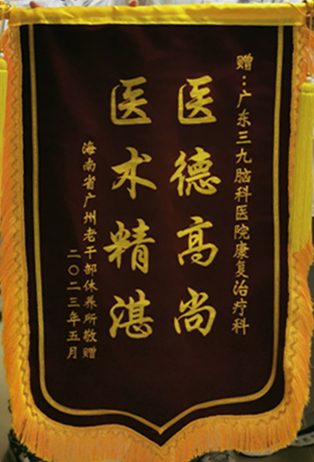 赠：广东三九脑科医院康复治疗科
医德高尚
医术精湛
海南省广州老干部休养所敬赠
二〇二三年五月